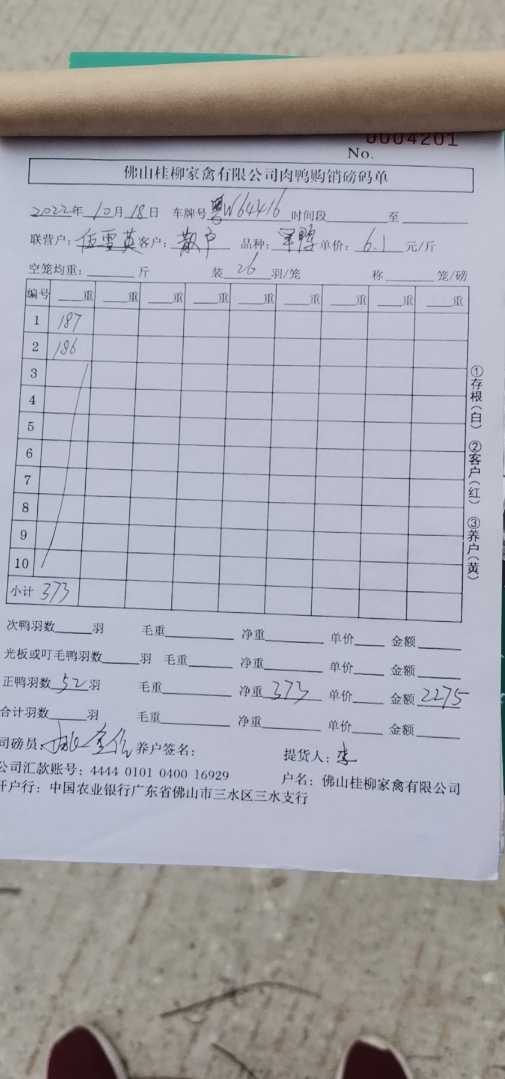 No. 0004201
佛山桂柳家禽有限公司肉鸭购销磅码单
2022年 10月 18日 车牌号 粤W64416 时间段 至
联营户: 伍雪英 客户: 散户 品种: 单价: 6.1 元/斤
空笼均重: 斤 装 26 羽/笼 称 笼/磅
编号 重 重 重 重 重 重 重 重
1 187
2 186
3
4
5
6
7
8
9
10
小计 373
①存根(白) ②客户(红) ③养户(黄)
次鸭羽数 羽 毛重 净重 单价 金额
光板或叮毛鸭羽数 羽 毛重 净重 单价 金额
正鸭羽数 52 羽 毛重 净重 373 单价 金额 2275
合计羽数 羽 毛重 净重 单价 金额
司磅员: 养户签名: 提货人: 李
公司汇款账号: 4444 0101 0400 16929 户名: 佛山桂柳家禽有限公司
开户行: 中国农业银行广东省佛山市三水区三水支行